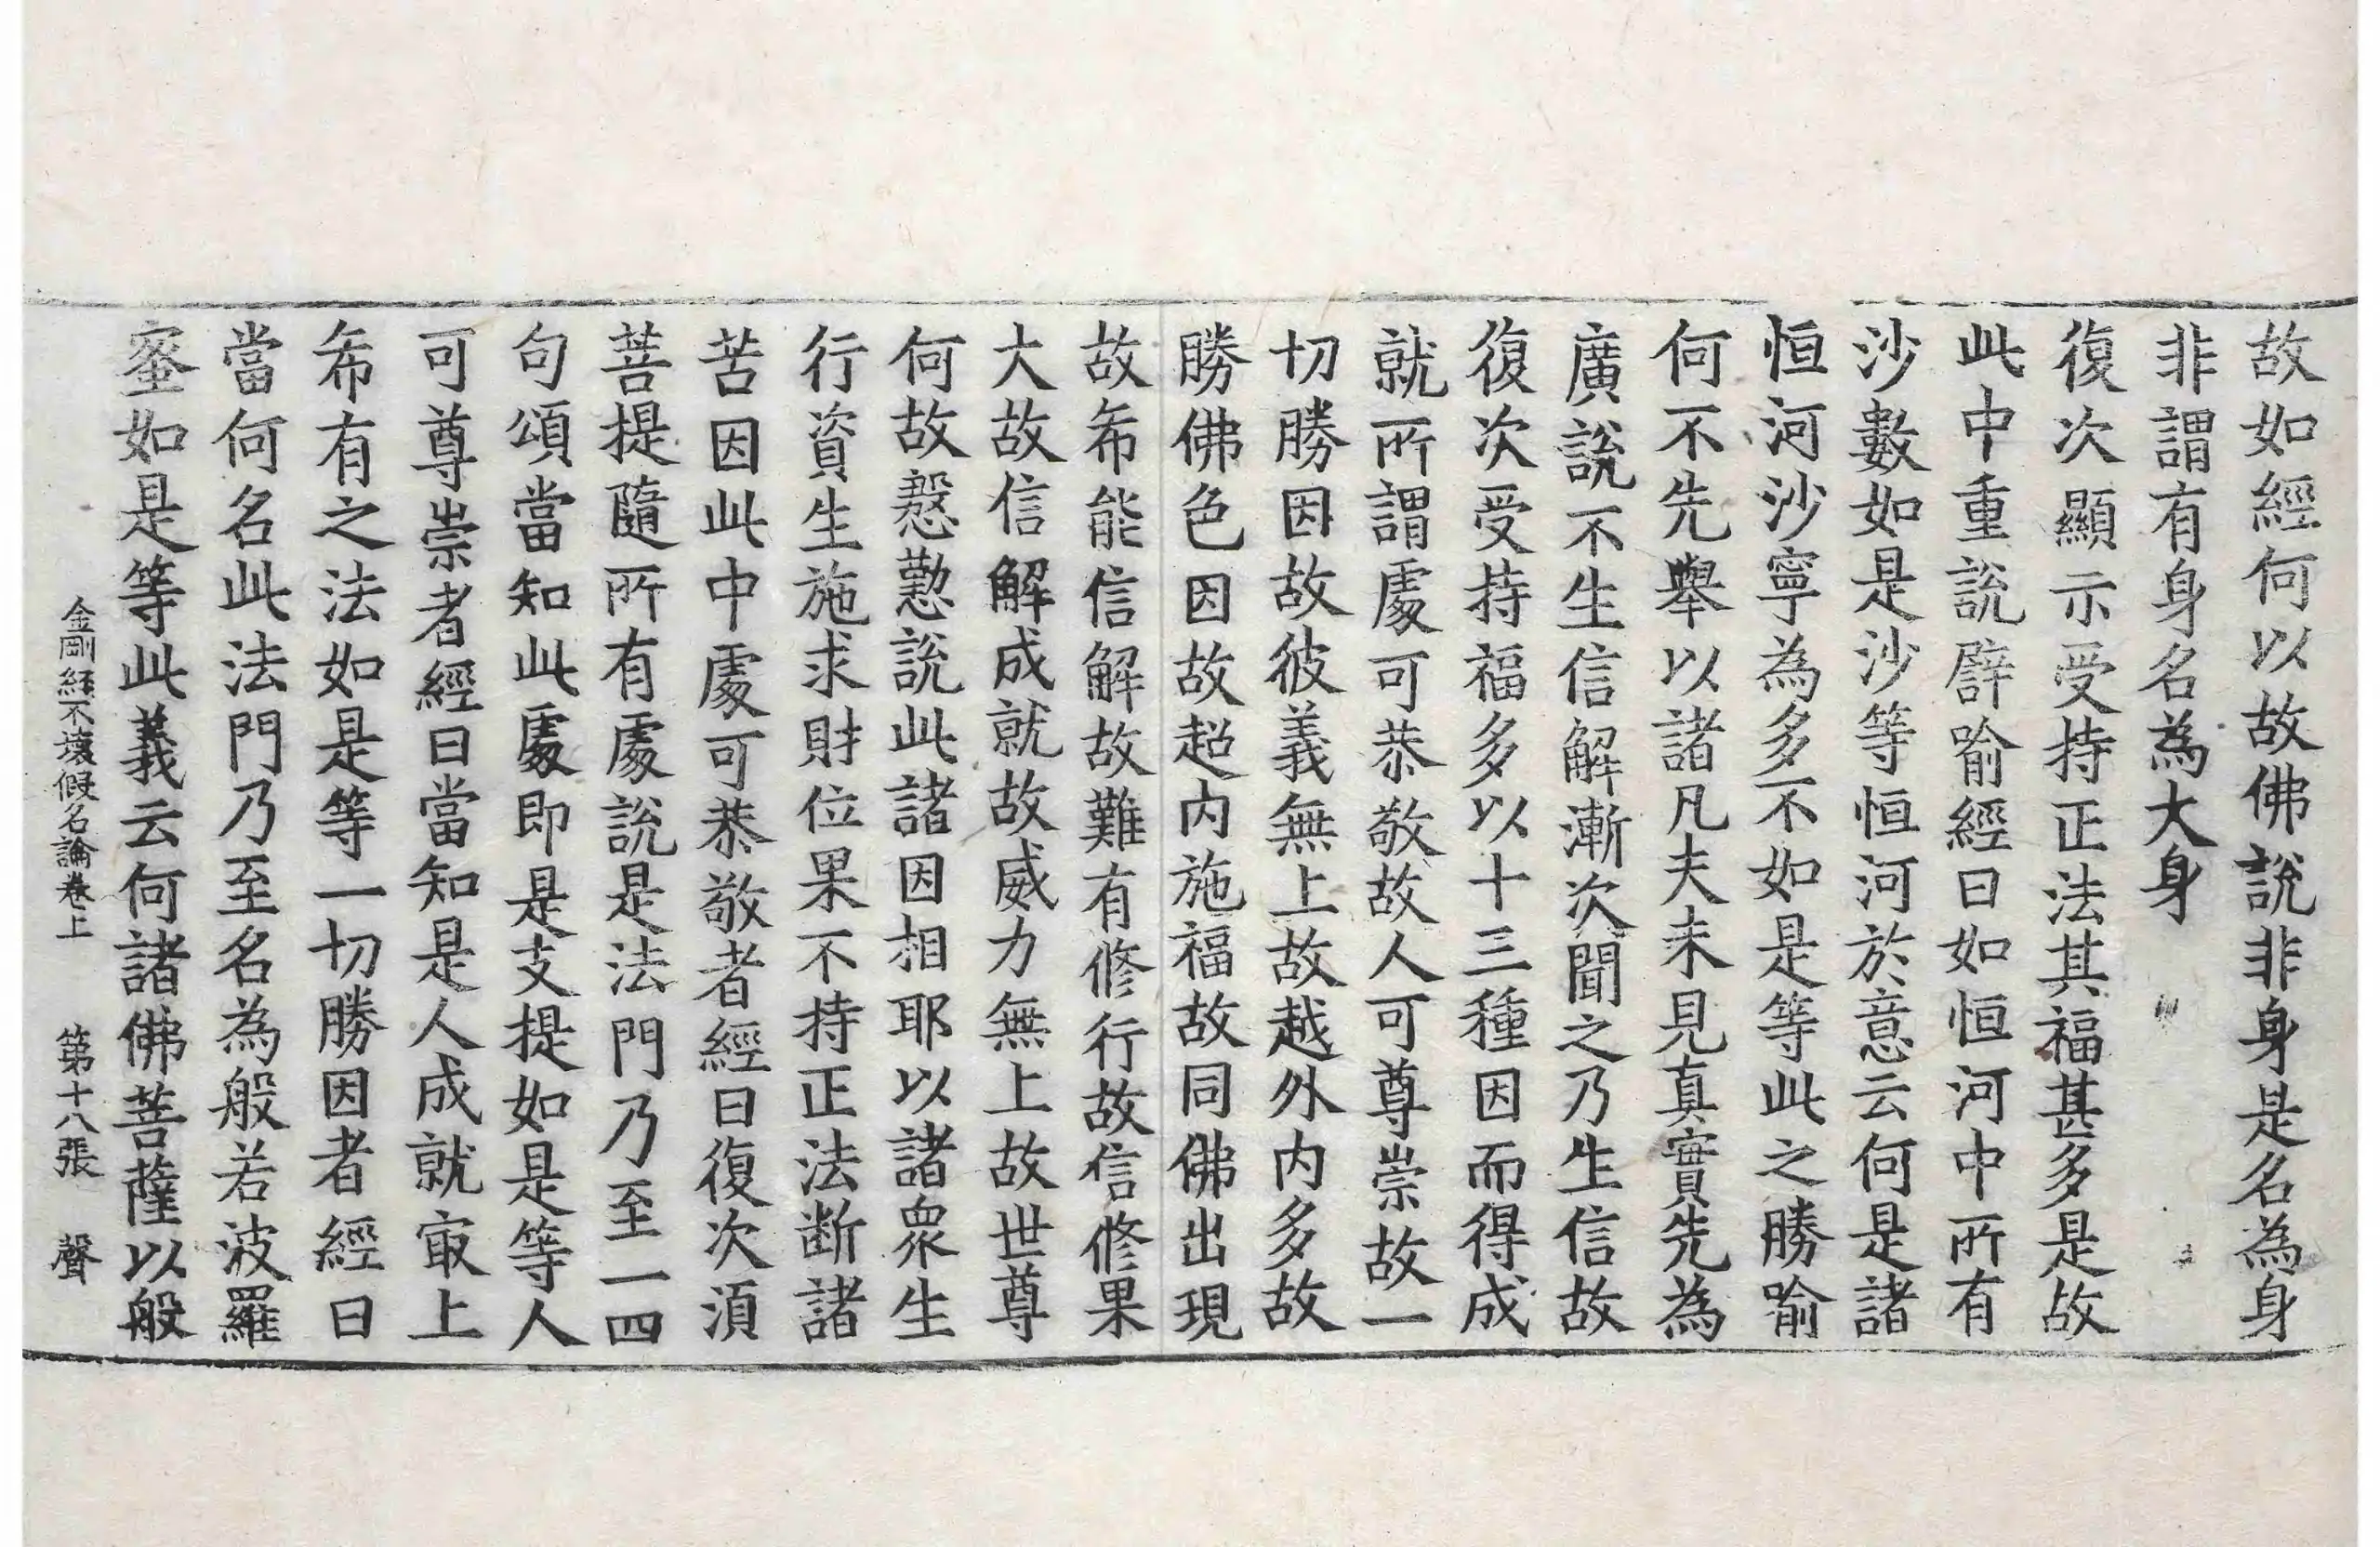 故如經何以故佛說非身是名為身
非謂有身名為大身
復次顯示受持正法其福甚多是故
此中重說譬喻經曰如恒河中所有
沙數如是沙等恒河於意云何是諸
恒河沙寧為多不如是等此之勝喻
何不先舉以諸凡夫未見真實先為
廣說不生信解漸次聞之乃生信故
復次受持福多以十三種因而得成
就所謂處可恭敬故人可尊崇故一
切勝因故彼義無上故越外內多故
勝佛色因故超內施福故同佛出現
故希能信解故難有修行故信修果
大故信解成就故威力無上故世尊
何故慇懃說此諸因相耶以諸眾生
行資生施求財位果不持正法斷諸
苦因此中處可恭敬者經曰復次須
菩提隨所有處說是法門乃至一四
句頌當知此處即是支提如是等人
可尊崇者經曰當知是人成就㝡上
希有之法如是等一切勝因者經曰
當何名此法門乃至名為般若波羅
蜜如是等此義云何諸佛菩薩以般
金剛經不壞假名論卷上 第十八張 聲